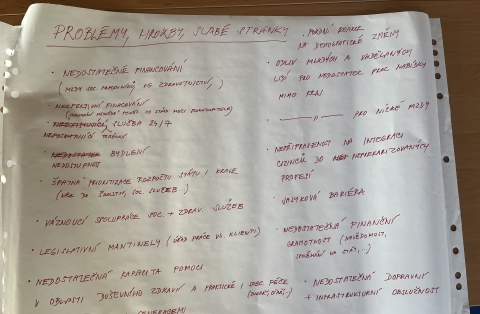 PROBLÉMY, HROZBY, SLABÉ STRÁNKY
• NEDOSTATEČNÉ FINANCOVÁNÍ
(MZDY SOC. PRACOVNÍKŮ, VS ZDRAVOTNICTVÍ, )
• NEEFEKTIVNÍ FINACOVÁNÍ
SLUŽBA 24/7
BYDLENÍ
NEDOSTUPNOST
• ŠPATNÁ PRIORITIZACE ROZPOČTU STÁTU I KRAJE
SOC. SLUŽEB
• VÁZNOUCÍ SPOLUPRÁCE SOC. + ZDRAV. SLUŽEB
• LEGISLATIVNÍ MANTINELY (ÚŘAD PRÁCE VS. KLIENTI)
• NEDOSTATEČNÁ KAPACITA POMOCI
V OBLASTI DUŠEVNÍHO ZDRAVÍ A PRAKTICKÉ I ODB. PÉČE
• POMALÁ REAKCE
NA DEMOGRAFICKÉ ZMĚNY
• ODLIV MLADÝCH A VZDĚLANÝCH
LIDÍ PRO NEDOSTATEK PRAC. NABÍDKY
MIMO KRAJ
• ——— " ——— PRO NÍZKÉ MZDY
• NEPŘIPRAVENOST NA INTEGRACI
CIZINCŮ DO NEPREKARIZOVANÝCH
PROFESÍ
• JAZYKOVÁ BARIÉRA
• NEDOSTATEČNÁ FINANČNÍ
GRAMOTNOST (NEVĚDOMOST,
• NEDOSTATEČNÁ DOPRAVNÍ
+ INFRASTRUKTURNÍ OBSLUŽNOST